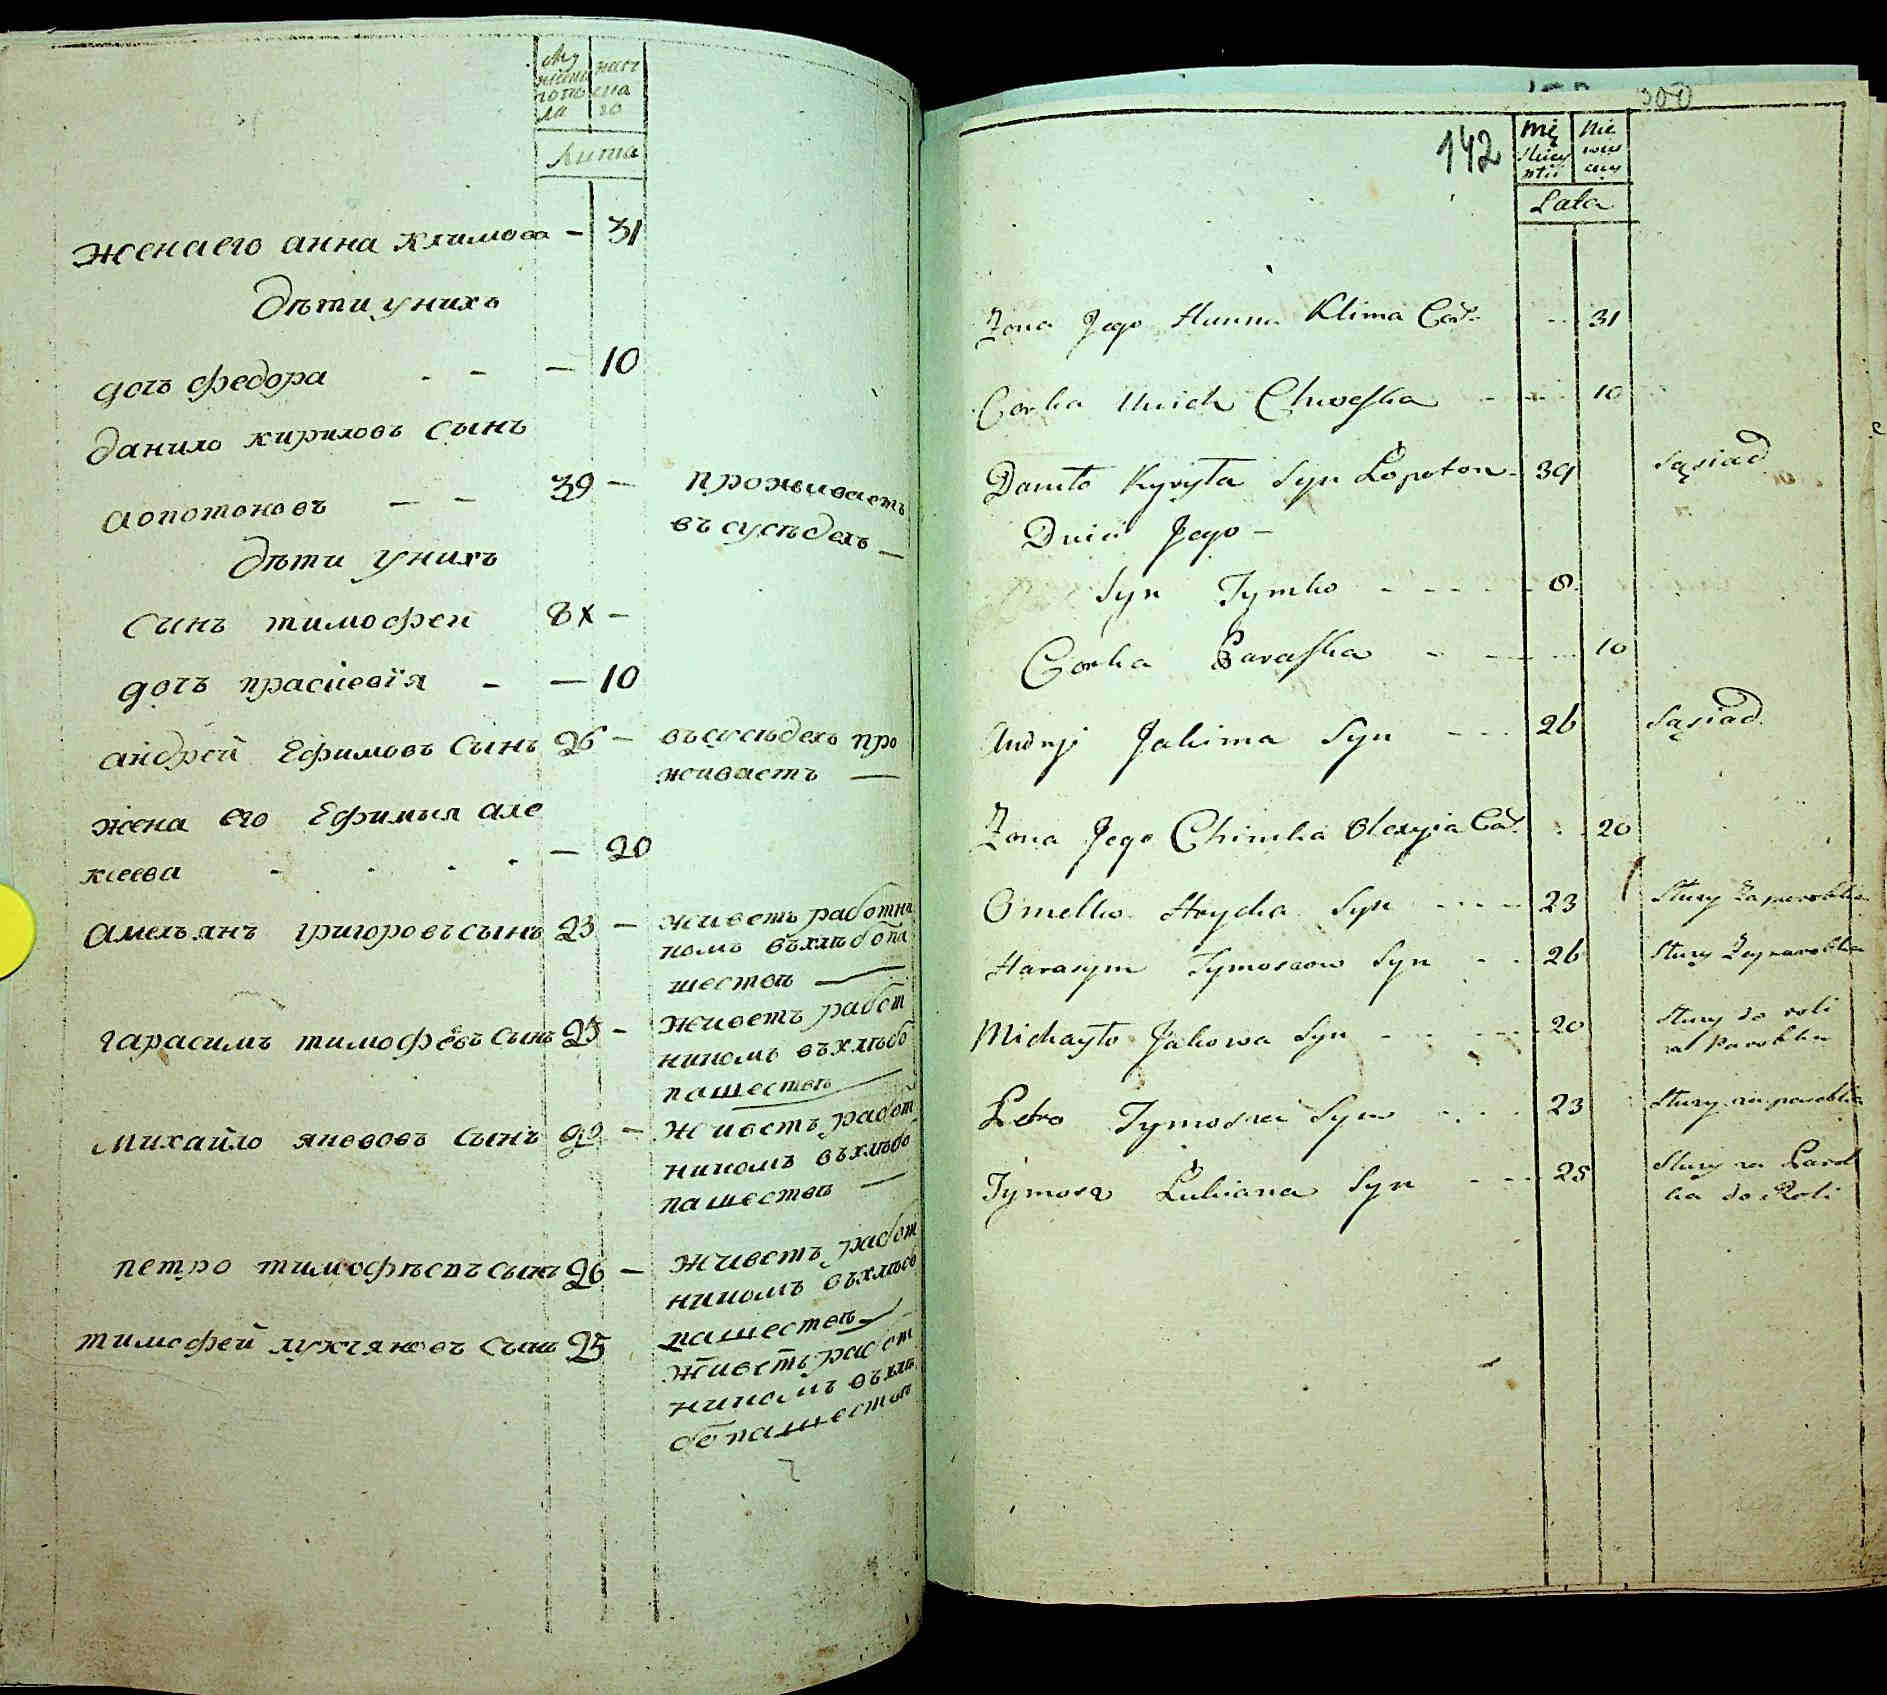 Лѣта
женаего анна климова — 31
дѣти унихъ
дочь федора - - — 10
данило кириловъ сынъ
лопотоновъ — — 39 — проживаетъ
въсусѣдехъ —
дѣти унихъ
сынъ тимофей 8 —
дочъ прасцевїя - — 10
андрей Ефимовъ сынъ 26 — въсусѣдехъ про
живаетъ —
жена его Ефимыя але
ксеева - . . . — 20
амельянъ григоровъсынъ 23 — живетъ работни
комъ вхлѣбопа
шествѣ —
гарасимъ тимофѣевъ сынъ 25 — живетъ работ
никомъ вхлѣбо
пашествѣ
михайло яковъ сынъ — живетъ работ
никомъ вхлѣбо
пашествѣ —
петро тимофѣевъ сынъ 26 — живетъ работ
никомъ вхлѣбо
пашествѣ
тимофей лукіяновъ сынъ 25 живетъ работ
никомъ вхлѣ
бопашествѣ
300
142
Lata
Zona Jego Hanna Klima Cór. - - 31
Corka Unich Chweska - - - 10
Daniło Kyryła Syn Lopoton - 39 Sąsiad
Dzieci Jego -
Syn Tymko - - - - 8
Corka Paraska - - - 10
Andryi Jakima Syn - - - 26 Sąsiad
Zona Jego Chimka Olexyia Cór. . . 20
Omelko Hrycka Syn - - - - 23 Służy za parobka
Harasym Tymoszow Syn - - 26 Służy za parobka
Michayło Jakowa Syn - - - - 20 Służy do roli
za Parobka
Petro Tymosza Syn - . . . 23 Służy za parobka
Tymosz Lukiana Syn - - - 25 Służy za Parob
ka do Roli